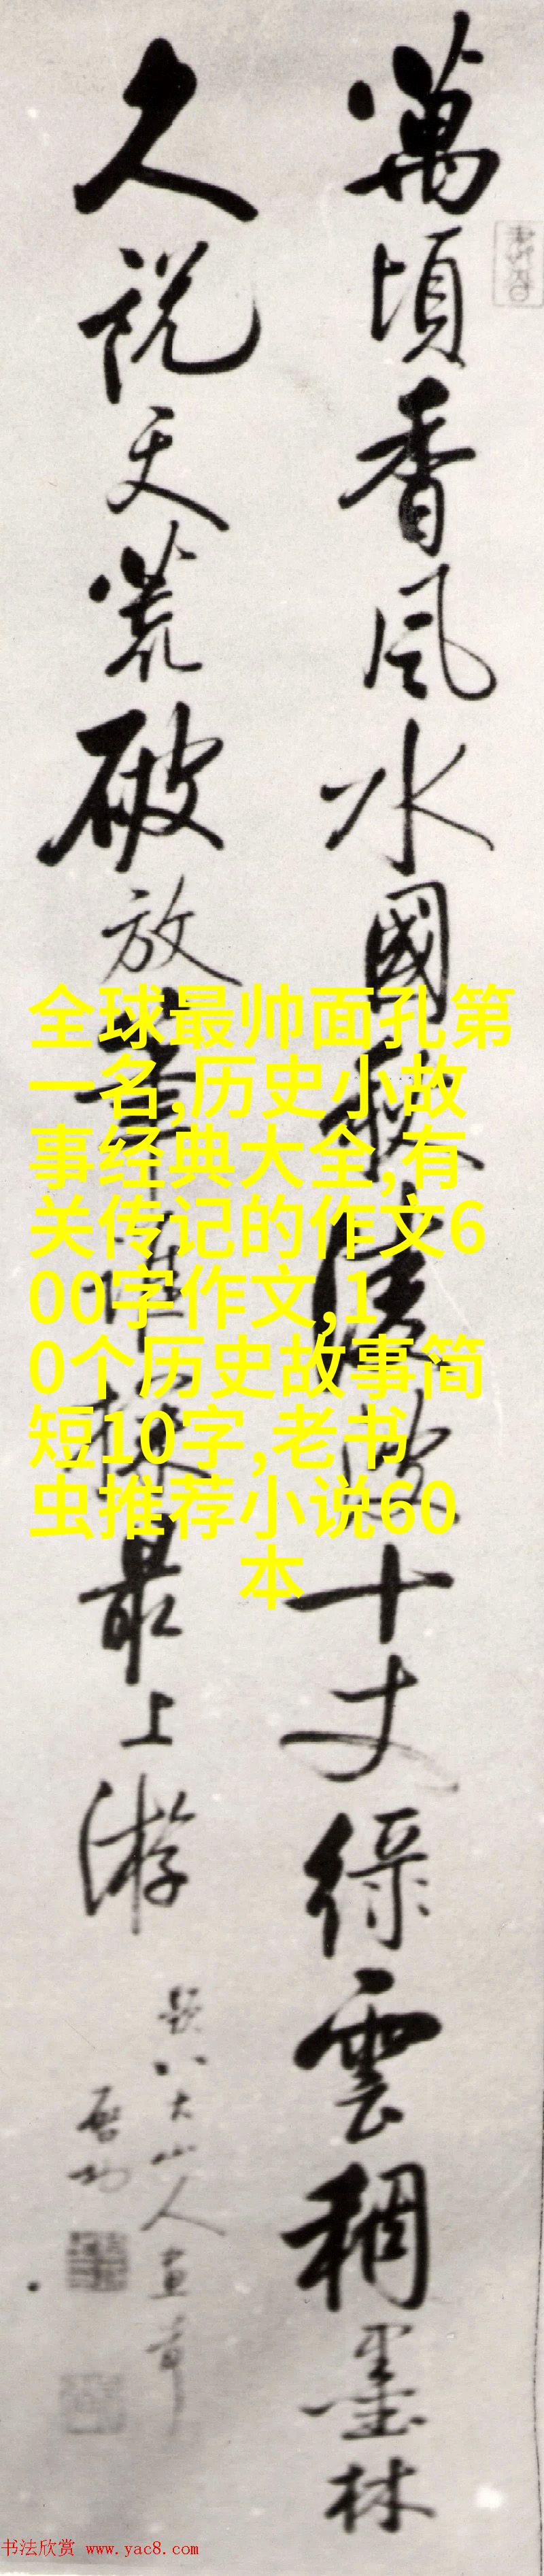 萬頃香風水國秋十丈綠雲稠墨林
久說天荒破放筆誰操最上游
題八大山人畫
啓功
全球最帅面孔第
一名,历史小故
事经典大全,有
关传记的作文6
00字作文,1
0个历史故事简
短10字,老书
虫推荐小说60
本
书法欣赏 www.yac8.com